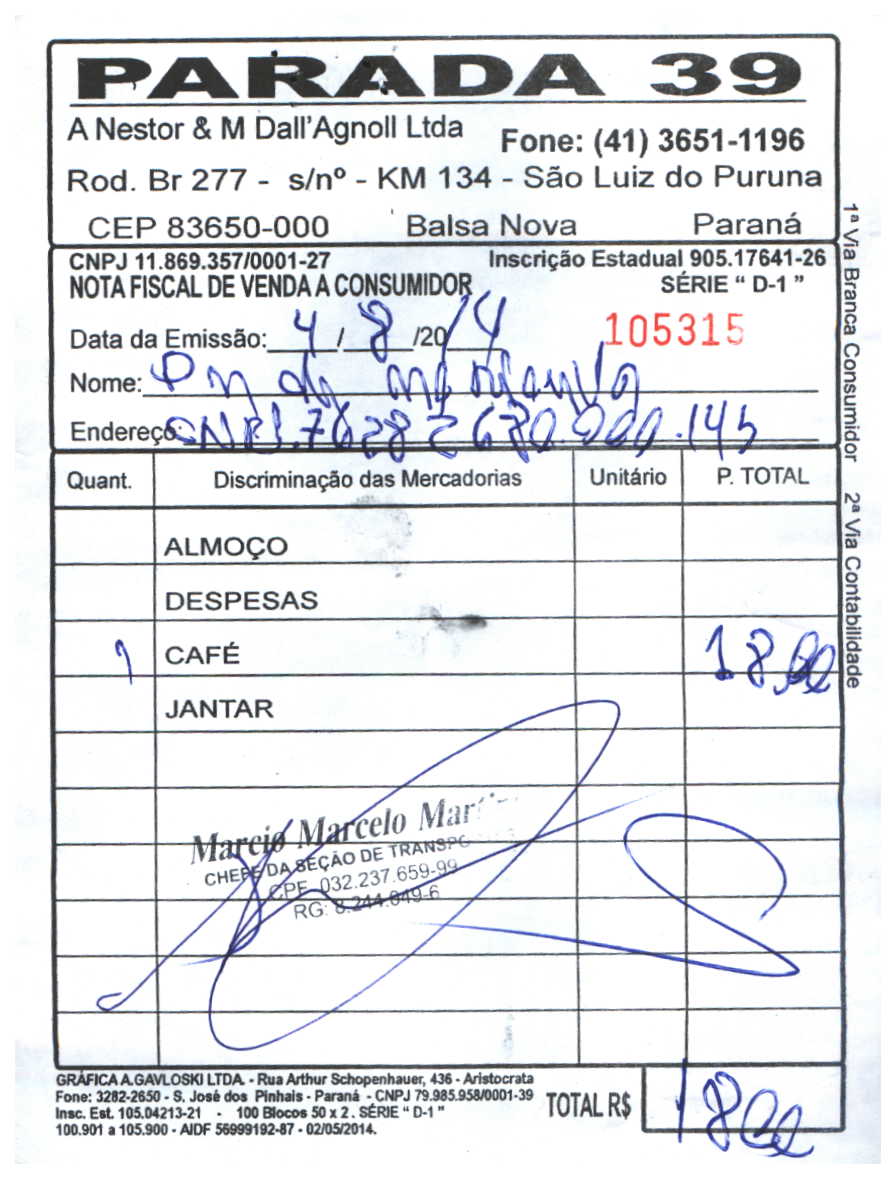 PARADA 39
A Nestor & M Dall'Agnoll Ltda
Fone: (41) 3651-1196
Rod. Br 277 - s/nº - KM 134 - São Luiz do Puruna
CEP 83650-000 Balsa Nova Paraná
CNPJ 11.869.357/0001-27 Inscrição Estadual 905.17641-26
NOTA FISCAL DE VENDA A CONSUMIDOR SÉRIE “ D-1 ”
Data da Emissão: 4 / 8 /20 14 105315
Nome: PM de
Endereço: CNPJ.76282680.000.145
Quant. Discriminação das Mercadorias Unitário P. TOTAL
ALMOÇO
DESPESAS
1 CAFÉ 18,00
JANTAR
Marcio Marcelo
CHEFE DA SEÇÃO DE
CPF 032.237.659-99
RG: 8.244.849-6
GRÁFICA A.GAVLOSKI LTDA. - Rua Arthur Schopenhauer, 436 - Aristocrata
Fone: 3282-2650 - S. José dos Pinhais - Paraná - CNPJ 79.985.958/0001-39
Insc. Est. 105.04213-21 - 100 Blocos 50 x 2 . SÉRIE “ D-1 ”
100.901 a 105.900 - AIDF 56999192-87 - 02/05/2014.
TOTAL R$ 18,00
1ª Via Branca Consumidor 2ª Via Contabilidade